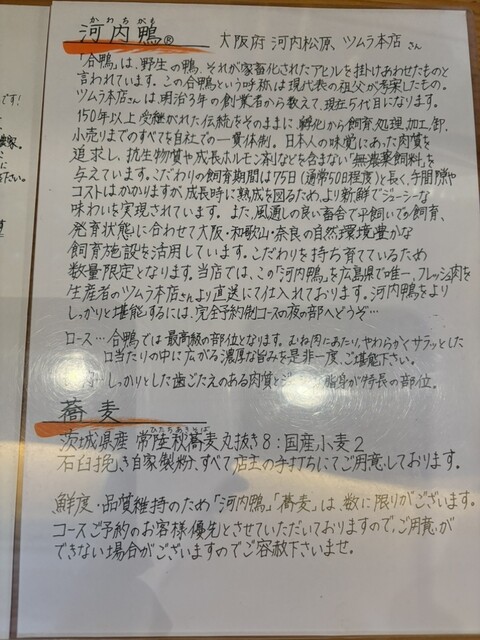 かわちがも
河内鴨® 大阪府 河内松原、ツムラ本店さん
「合鴨」は、野生の鴨、それが家畜化されたアヒルを掛けあわせたものと
言われています。この合鴨という呼称は現代表の祖父が考案したもの。
ツムラ本店さんは明治3年の創業者から数えて、現在5代目になります。
150年以上受継がれた伝統をそのままに、孵化から飼育、処理、加工、卸、
小売りまでのすべてを自社での一貫体制。日本人の味覚にあった肉質を
追求し、抗生物質や成長ホルモン剤などを含まない「無薬飼料」を
与えています。こだわりの飼育期間は75日(通常50日程度)と長く、手間隙や
コストはかかりますが、成長時に熟成を図るため、より新鮮でジューシーな
味わいを実現されています。また、風通しの良い畜舎で平飼いでの飼育、
発育状態に合わせて大阪・和歌山・奈良の自然環境豊かな
飼育施設を活用しています。こだわりを持ち育てているため
数量限定となります。当店では、この「河内鴨」を広島県で唯一、フレッシュ肉を
生産者のツムラ本店さんより直送にて仕入れております。河内鴨をより
しっかりと堪能するには、完全予約制コースの夜の部へどうぞ…
ロース…合鴨では最高級の部位となります。むね肉にあたり、やわらかくサラッとした
口当たりの中に広がる濃厚な旨みを是非一度、ご堪能下さい。
…しっかりとした歯ごたえのある肉質と 脂身が特長の部位。
蕎麦
ひたちあきそば
茨城県産 常陸秋蕎麦丸抜き8:国産小麦2
石臼挽き自家製粉、すべて店主の手打ちにてご用意しております。
鮮度・品質維持のため「河内鴨」「蕎麦」は、数に限りがございます。
コースご予約のお客様優先とさせていただいておりますので、ご用意が
できない場合がございますのでご容赦下さいませ。